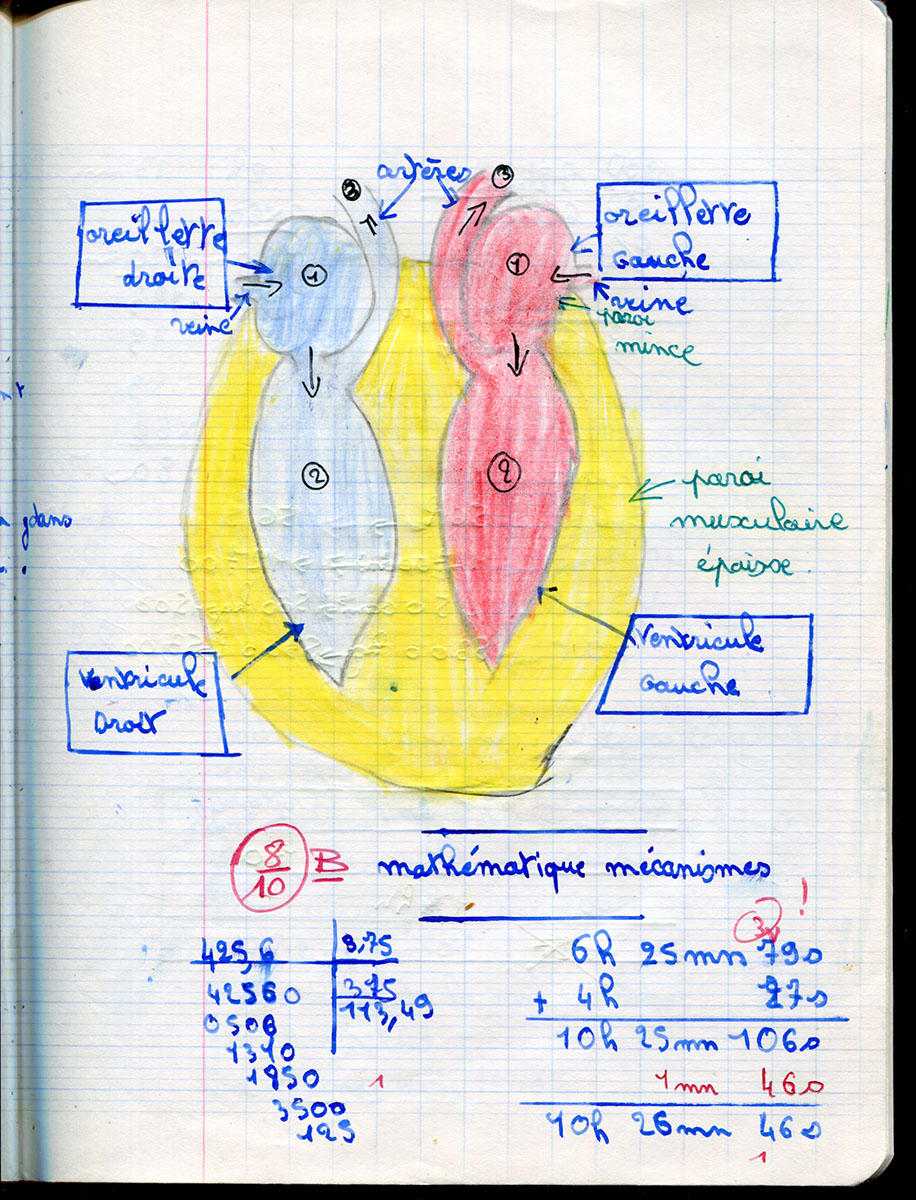 artères
3
3
oreillette
droite
oreillette
Gauche
1
1
veine
veine
paroi
mince
2
2
paroi
musculaire
épaisse.
dans
Ventricule
Droit
Ventricule
Gauche
8/10 B mathématique mécanismes
!
425,6 3,75
42560 375
0506 113,49
1310
1850
3500
125
1
6h 25mn 79s
+ 4h 27s
10h 25mn 106s
1mn 46s
10h 26mn 46s
1